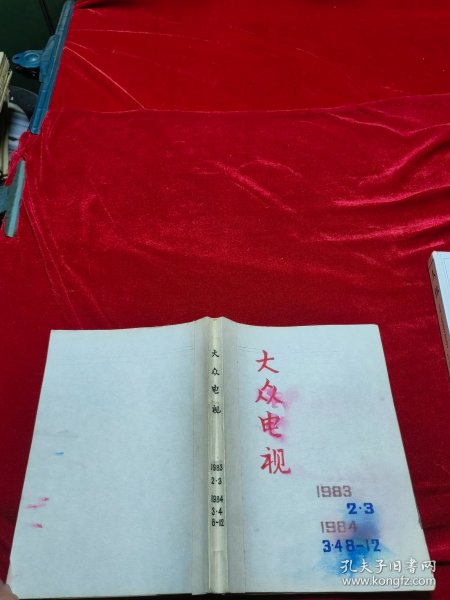 大
众
电
视
1983
2·3
1984
3·4
8-12
大
众
电
视
1983
2·3
1984
3·48-12
孔夫子旧书网
www.kongfz.com